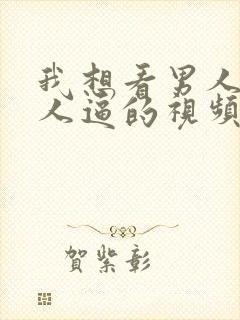 我想看男人
人逼的視頻
賀紫彰